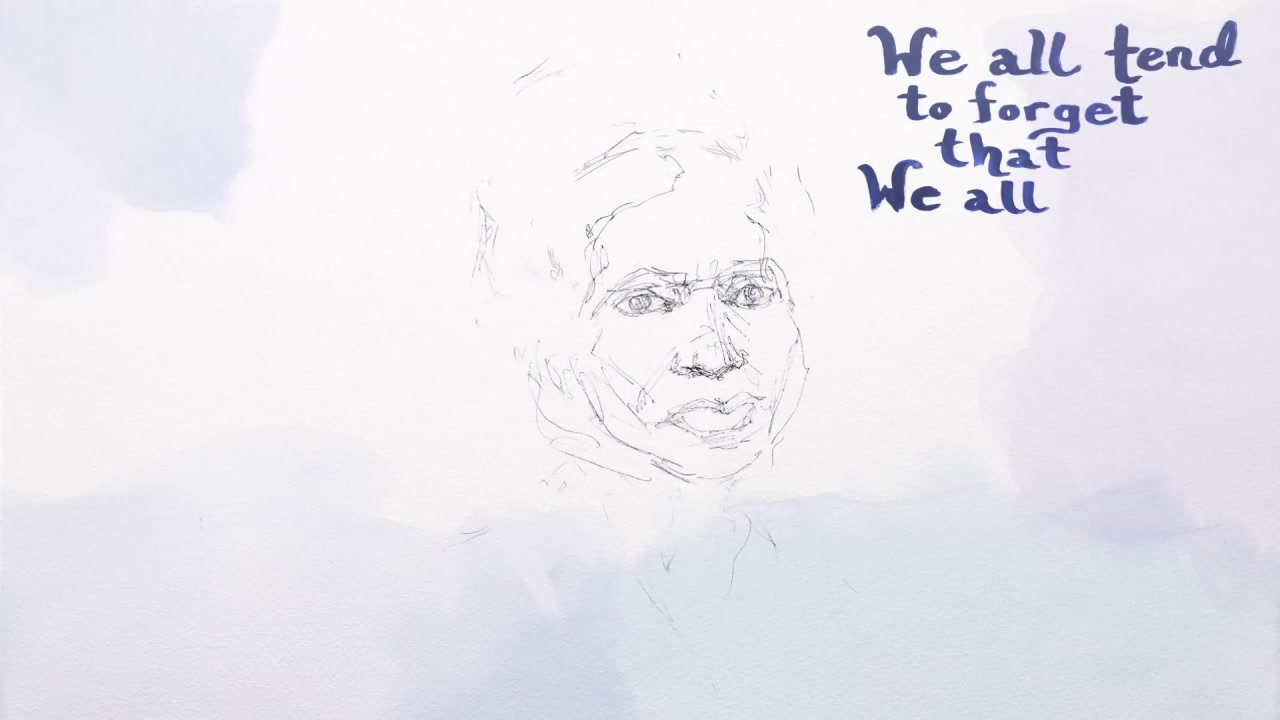 We all tend
to forget
that
We all